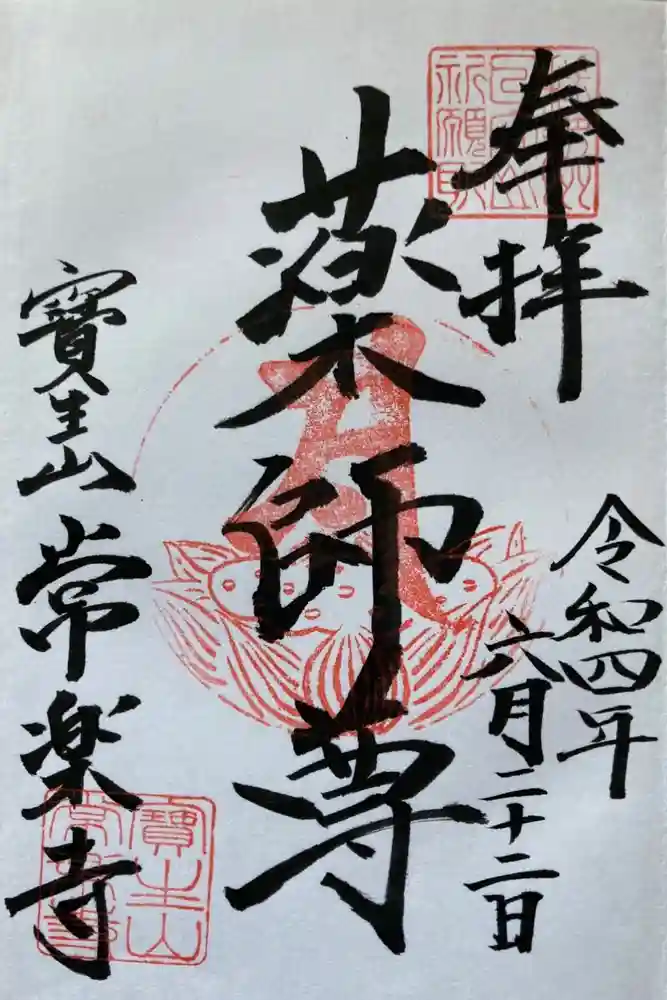 奉拝
令和四年
六月二十二日
薬師尊
寳生山
常楽寺
寳生山
常楽寺